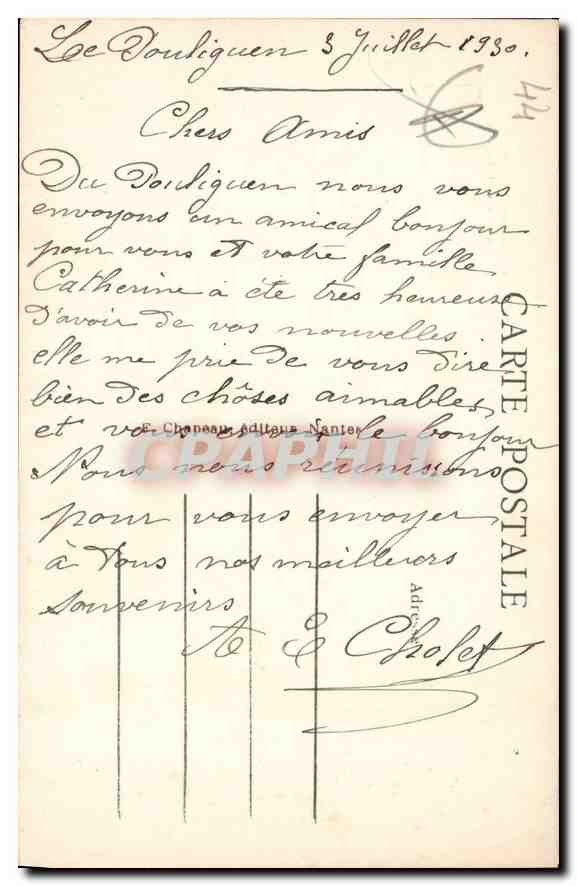 Le Pouliguen 3 Juillet 1930.
44
Chers Amis
Du Pouliguen nous vous
envoyons un amical bonjour
pour vous et votre famille
Catherine à été très heureuse
d'avoir de vos nouvelles.
elle me prie de vous dire
bien des chôses aimables
et vous envoi le bonjour
Nous nous réunissons
pour vous envoyer
à tous nos meilleurs
souvenirs
A E Cholet
CARTE POSTALE
Adresse
E. Chapeau, éditeur Nantes
CPAPHIL